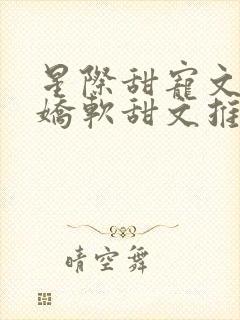 星際甜寵文
嬌軟甜文推
晴空舞